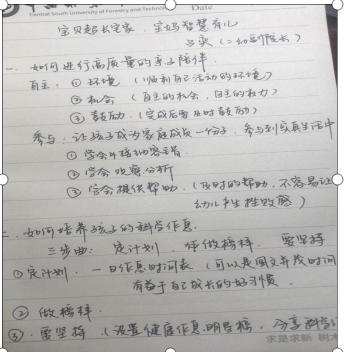 Central South University of Forestry and Technology
Date
宝贝超长定家，宝妈智慧有心
一、如何进行高质量的亲子陪伴
自主：① 环境（顺利自己活动的环境）
② 机会（自主的机会，自主的权力）
③ 鼓励（完成后要及时鼓励）
参与：让孩子成为家庭成员一分子，参与到实真生活中
① 学会
② 学会观察分析
③ 学会提供帮助（及时的帮助，不容易让
幼儿产生挫败感）
二、如何培养孩子的科学作息
三步曲：定计划 做榜样 要坚持
① 定计划 一日作息时间表（可以是图文并茂时间
有益于自己成长的好习惯
② 做榜样
③ 要坚持（设置健康作息明昌榜，分享
求是求新 树木